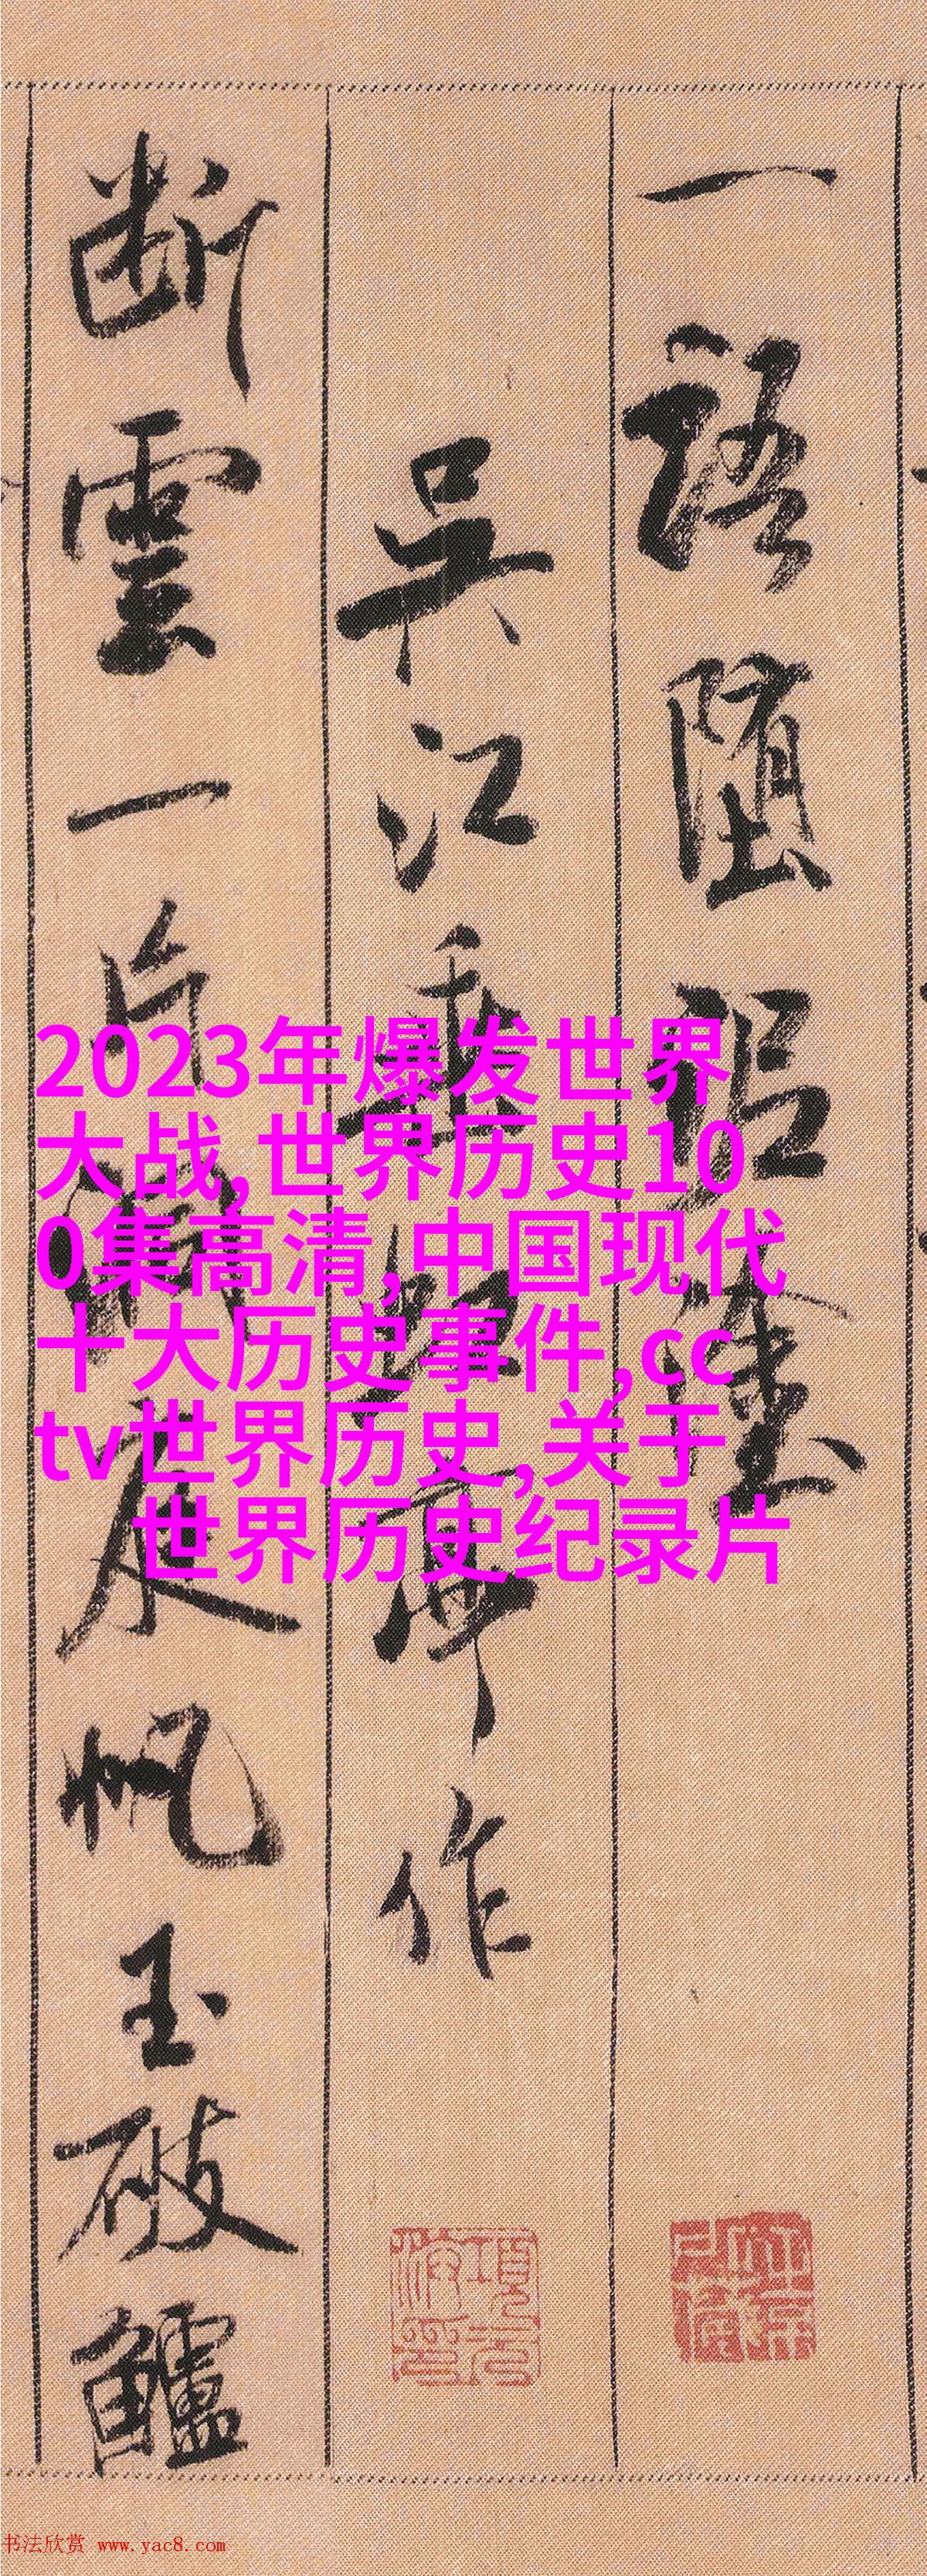 一語堕泥塗
吳江垂虹亭作
断雲一片洞庭帆玉破鱸
2023年爆发世界
大战,世界历史10
0集高清,中国现代
十大历史事件,cc
tv世界历史,关于
世界历史纪录片
书法欣赏 www.yac8.com